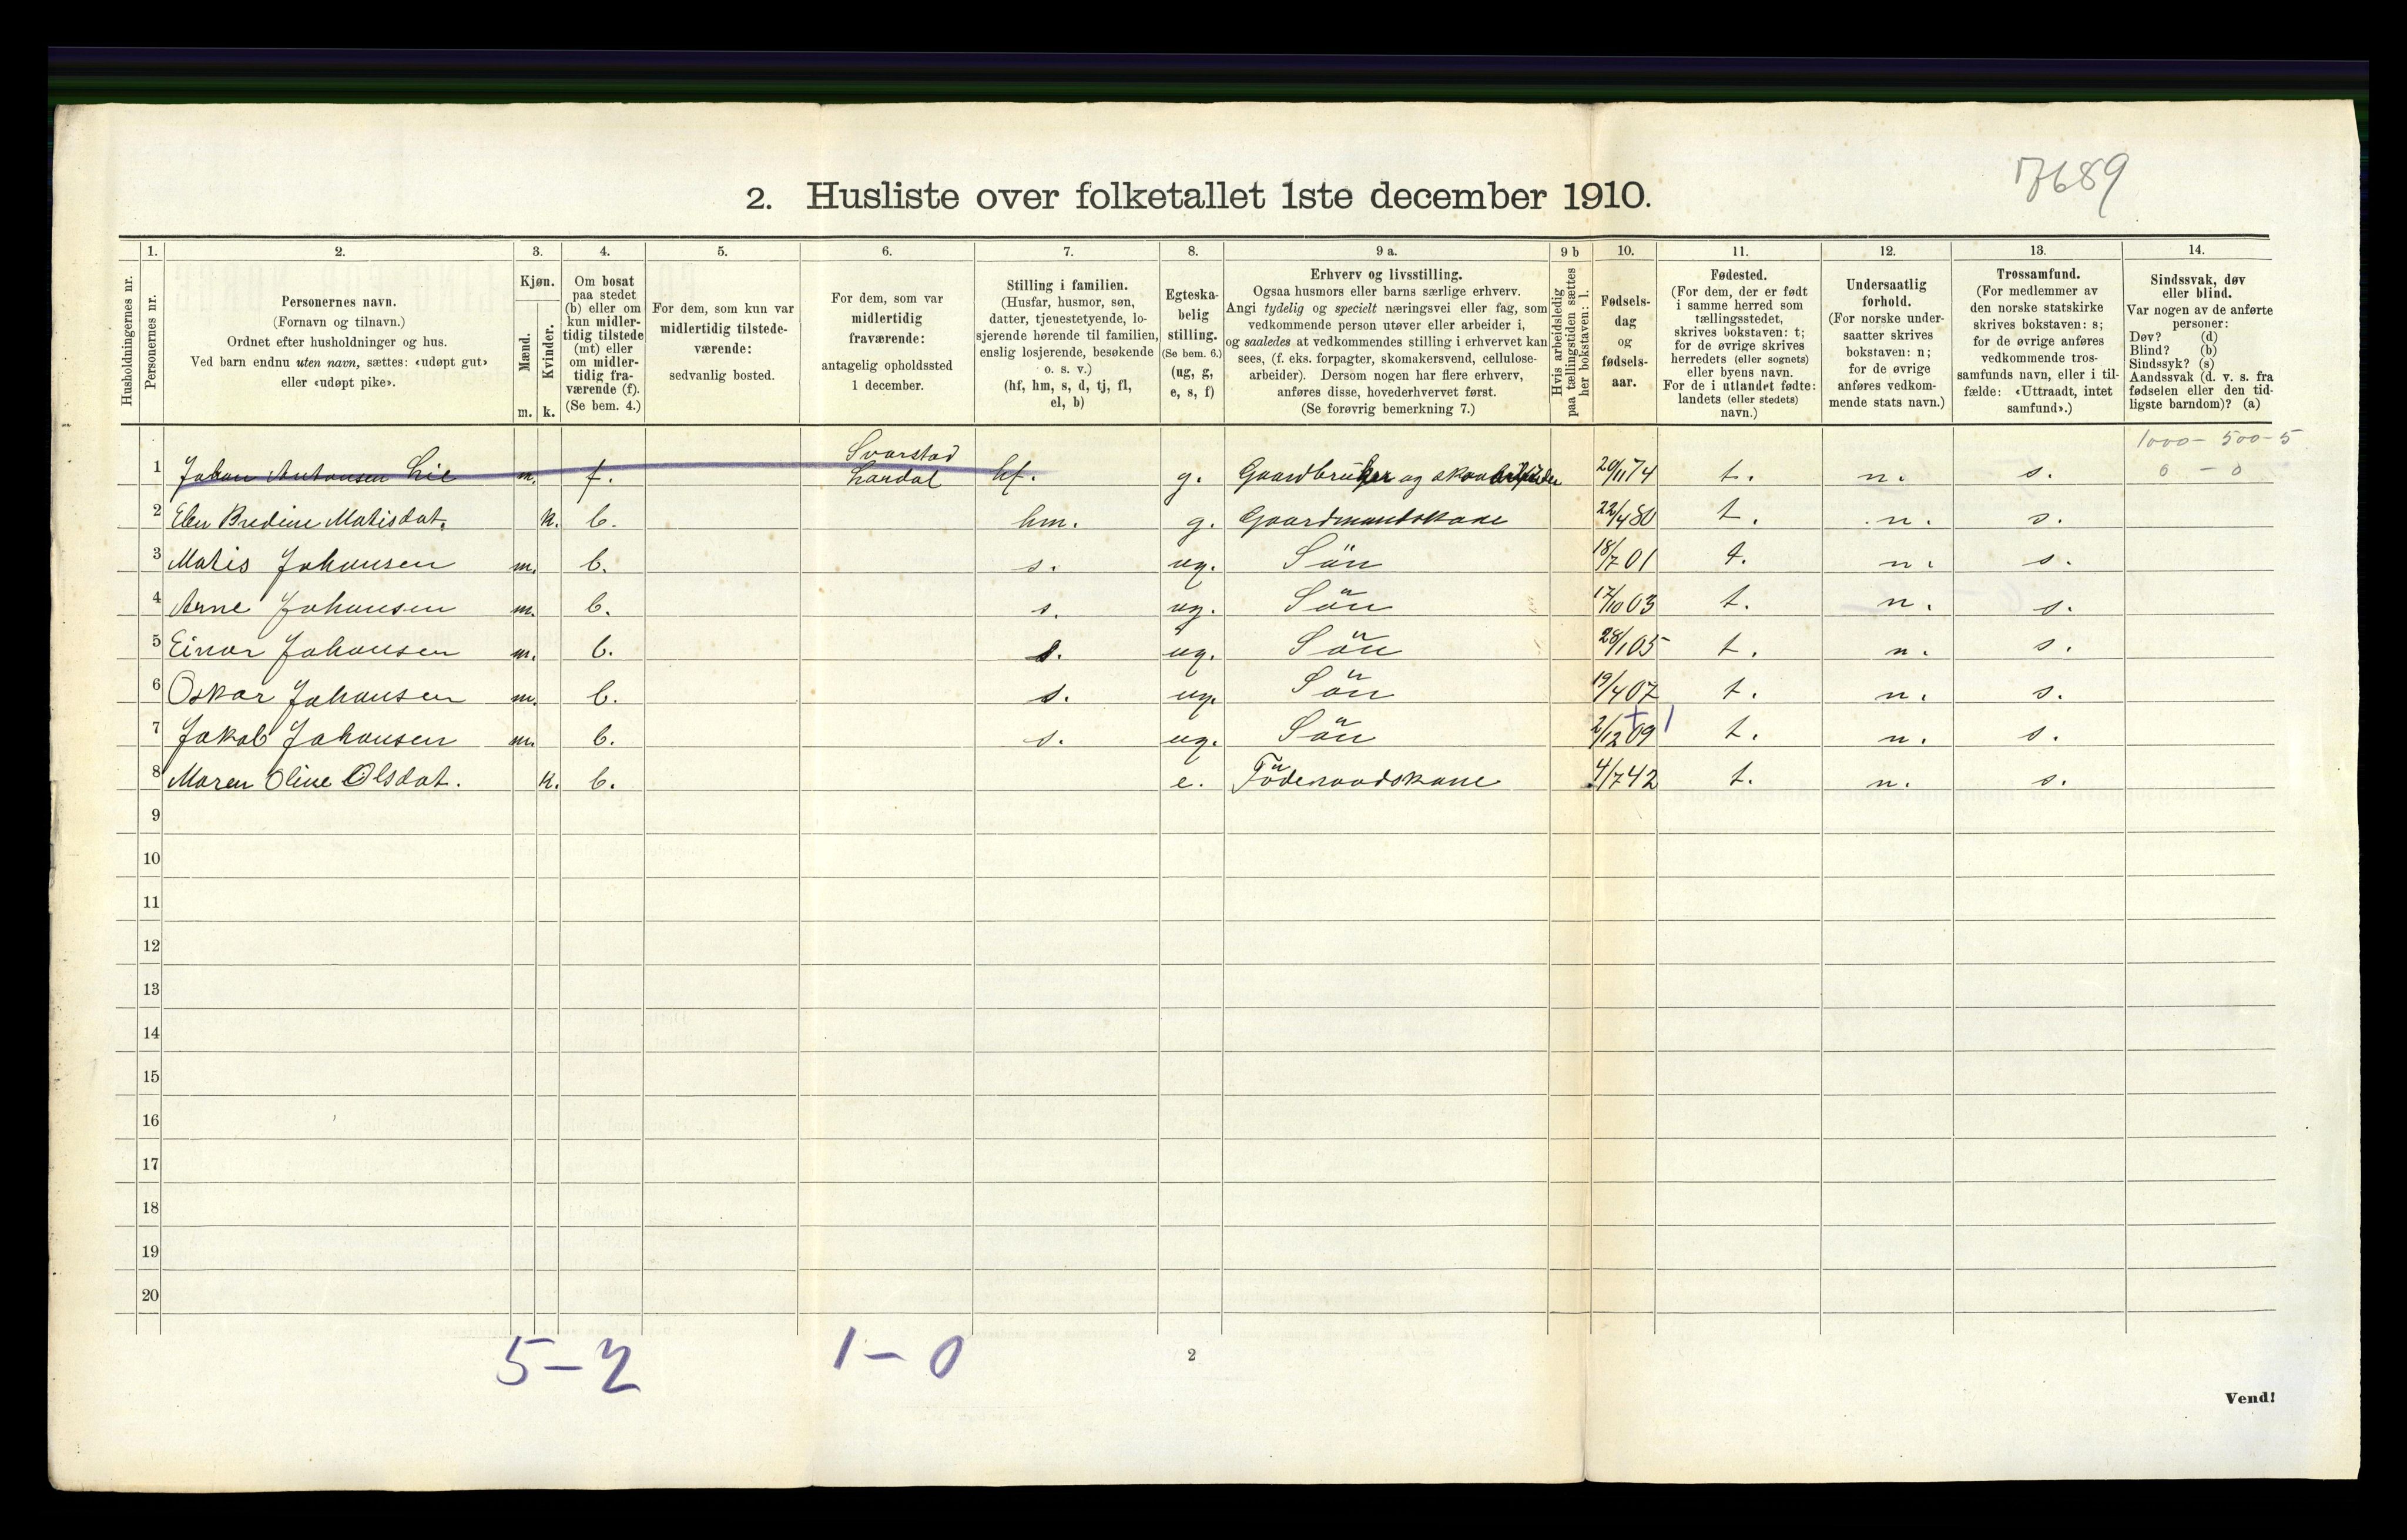 7689
2. Husliste over folketallet 1ste december 1910.
1. 2. 3. 4. 5. 6. 7. 8. 9 a. 9 b 10. 11. 12. 13. 14.
Husholdningernes nr.
Personernes nr.
Personernes navn.
(Fornavn og tilnavn.)
Ordnet efter husholdninger og hus.
Ved barn endnu uten navn, sættes: «udøpt gut»
eller «udøpt pike».
Kjøn.
Mænd.
Kvinder.
m. k.
Om bosat
paa stedet
(b) eller om
kun midler-
tidig tilstede
(mt) eller
om midler-
tidig fra-
værende (f).
(Se bem. 4.)
For dem, som kun var
midlertidig tilstede-
værende:
sedvanlig bosted.
For dem, som var
midlertidig
fraværende:
antagelig opholdssted
1 december.
Stilling i familien.
(Husfar, husmor, søn,
datter, tjenestetyende, lo-
sjerende hørende til familien,
enslig losjerende, besøkende
o. s. v.)
(hf, hm, s, d, tj, fl,
el, b)
Egteska-
belig
stilling.
(Se bem. 6.)
(ug, g,
e, s, f)
Erhverv og livsstilling.
Ogsaa husmors eller barns særlige erhverv.
Angi tydelig og specielt næringsvei eller fag, som
vedkommende person utøver eller arbeider i,
og saaledes at vedkommendes stilling i erhvervet kan
sees, (f. eks. forpagter, skomakersvend, cellulose-
arbeider). Dersom nogen har flere erhverv,
anføres disse, hovederhvervet først.
(Se forøvrig bemerkning 7.)
Hvis arbeidsledig
paa tællingstiden sættes
her bokstaven: l.
Fødsels-
dag
og
fødsels-
aar.
Fødested.
(For dem, der er født
i samme herred som
tællingsstedet,
skrives bokstaven: t;
for de øvrige skrives
herredets (eller sognets)
eller byens navn.
For de i utlandet fødte:
landets (eller stedets)
navn.)
Undersaatlig
forhold.
(For norske under-
saatter skrives
bokstaven: n;
for de øvrige
anføres vedkom-
mende stats navn.)
Trossamfund.
(For medlemmer av
den norske statskirke
skrives bokstaven: s;
for de øvrige anføres
vedkommende tros-
samfunds navn, eller i til-
fælde: «Uttraadt, intet
samfund».)
Sindssvak, døv
eller blind.
Var nogen av de anførte
personer:
Døv? (d)
Blind? (b)
Sindssyk? (s)
Aandssvak (d. v. s. fra
fødselen eller den tid-
ligste barndom)? (a)
1000 - 500 - 5
0 - 0
Svarstad
1 Johan Antonsen Lie m. f. Lardal hf. g. Gaardbruker og skovarbeider 20/11 74 t. n. s.
2 Elen Bredine Matisdat. k. b. hm. g. Gaardmandskone 22/4 80 t. n. s.
3 Matis Johansen m. b. s. ug. Sön 18/7 01 t. n. s.
4 Arne Johansen m. b. s. ug. Sön 17/10 03 t. n. s.
5 Einar Johansen m. b. s. ug. Sön 28/1 05 t. n. s.
6 Oskar Johansen m. b. s. ug. Sön 19/4 07 t. n. s.
7 Jakob Johansen m. b. s. ug. Sön 2/12 09 t. n. s.
8 Maren Oline Olsdat. k. b. e. Föderaadskone 4/7 42 t. n. s.
9
10
11
12
13
14
15
16
17
18
19
20
5-2 1-0
2
Vend!